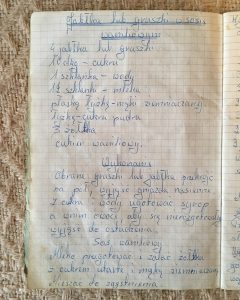 Jabłka lub gruszki w sosie
waniliowym
4 jabłka lub gruszki
10 dkg - cukru
1 szklanka - wody
1/2 szklanki - mleka
płaska łyżka - mąki ziemniaczanej
łyżka - cukru pudru
3 żółtka
cukier waniliowy.
Wykonanie
Obrane gruszki lub jabłka przekroić
na poły wyjąć gniazda nasienne
Z cukru i wody ugotować syrop
a w nim owoce, aby się nie rozgotowały
wyjąć do ostudzenia.
Sos waniliowy
Mleko przegotować i zalać żółtka
z cukrem utarte i mąkę ziemniaczaną
mieszać do zgęstnienia.